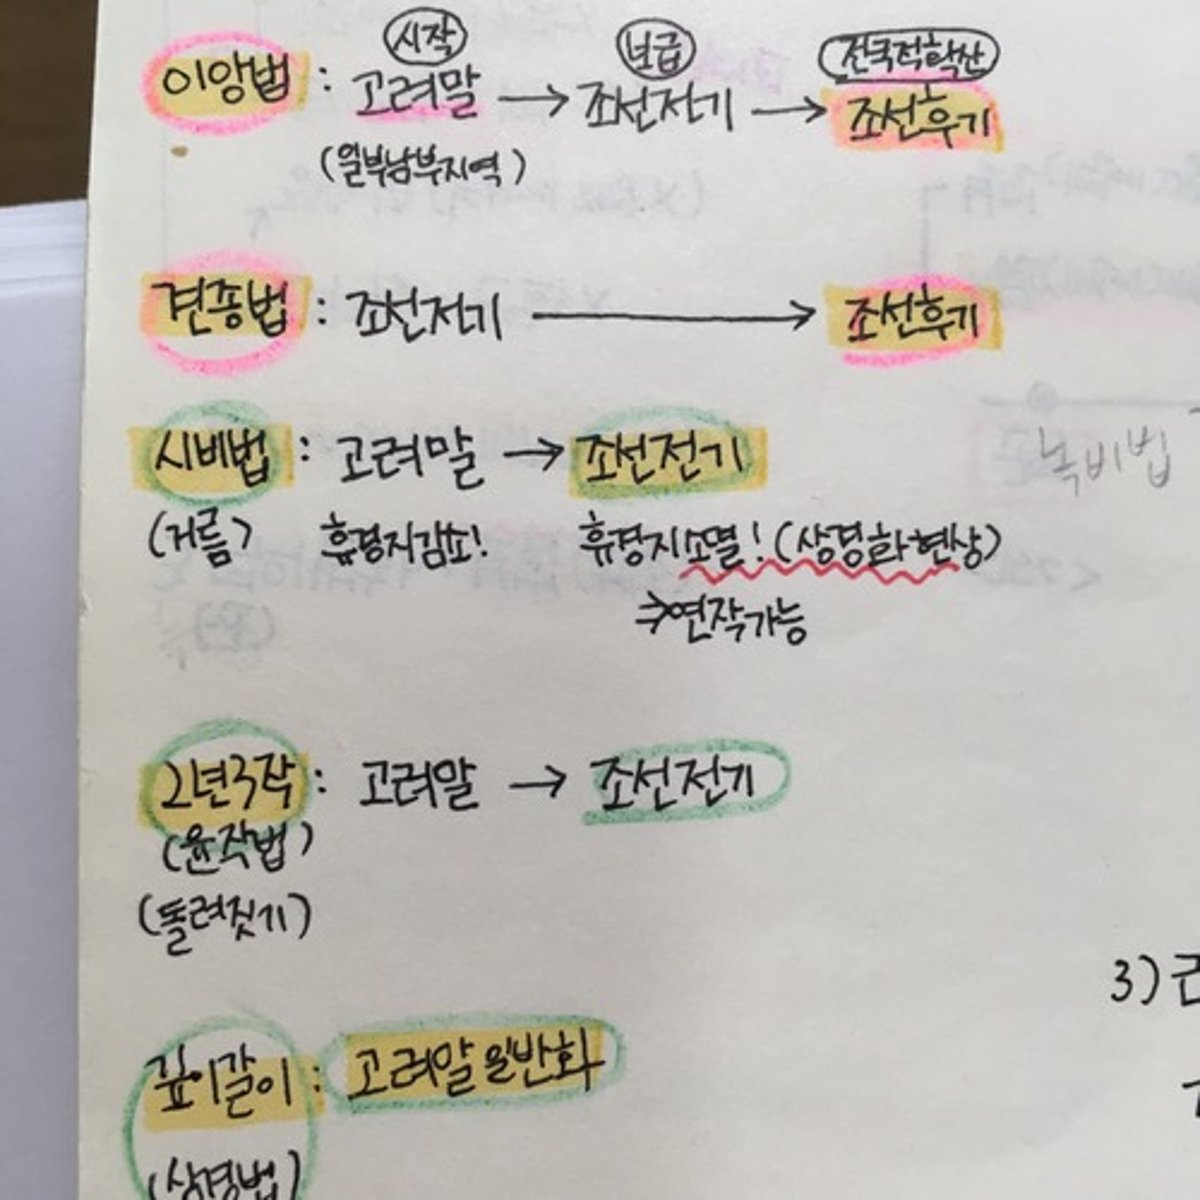 시작 보급 전국적확산
이앙법 : 고려말 → 조선전기 → 조선후기
(일부남부지역)
견종법 : 조선전기 → 조선후기
시비법 : 고려말 → 조선전기
녹비법
(거름) 휴경지감소! 휴경지소멸! (상경화현상)
→연작가능
2년3작 : 고려말 → 조선전기
(윤작법)
(돌려짓기)
3)
깊이갈이 : 고려말 일반화
(상경법)